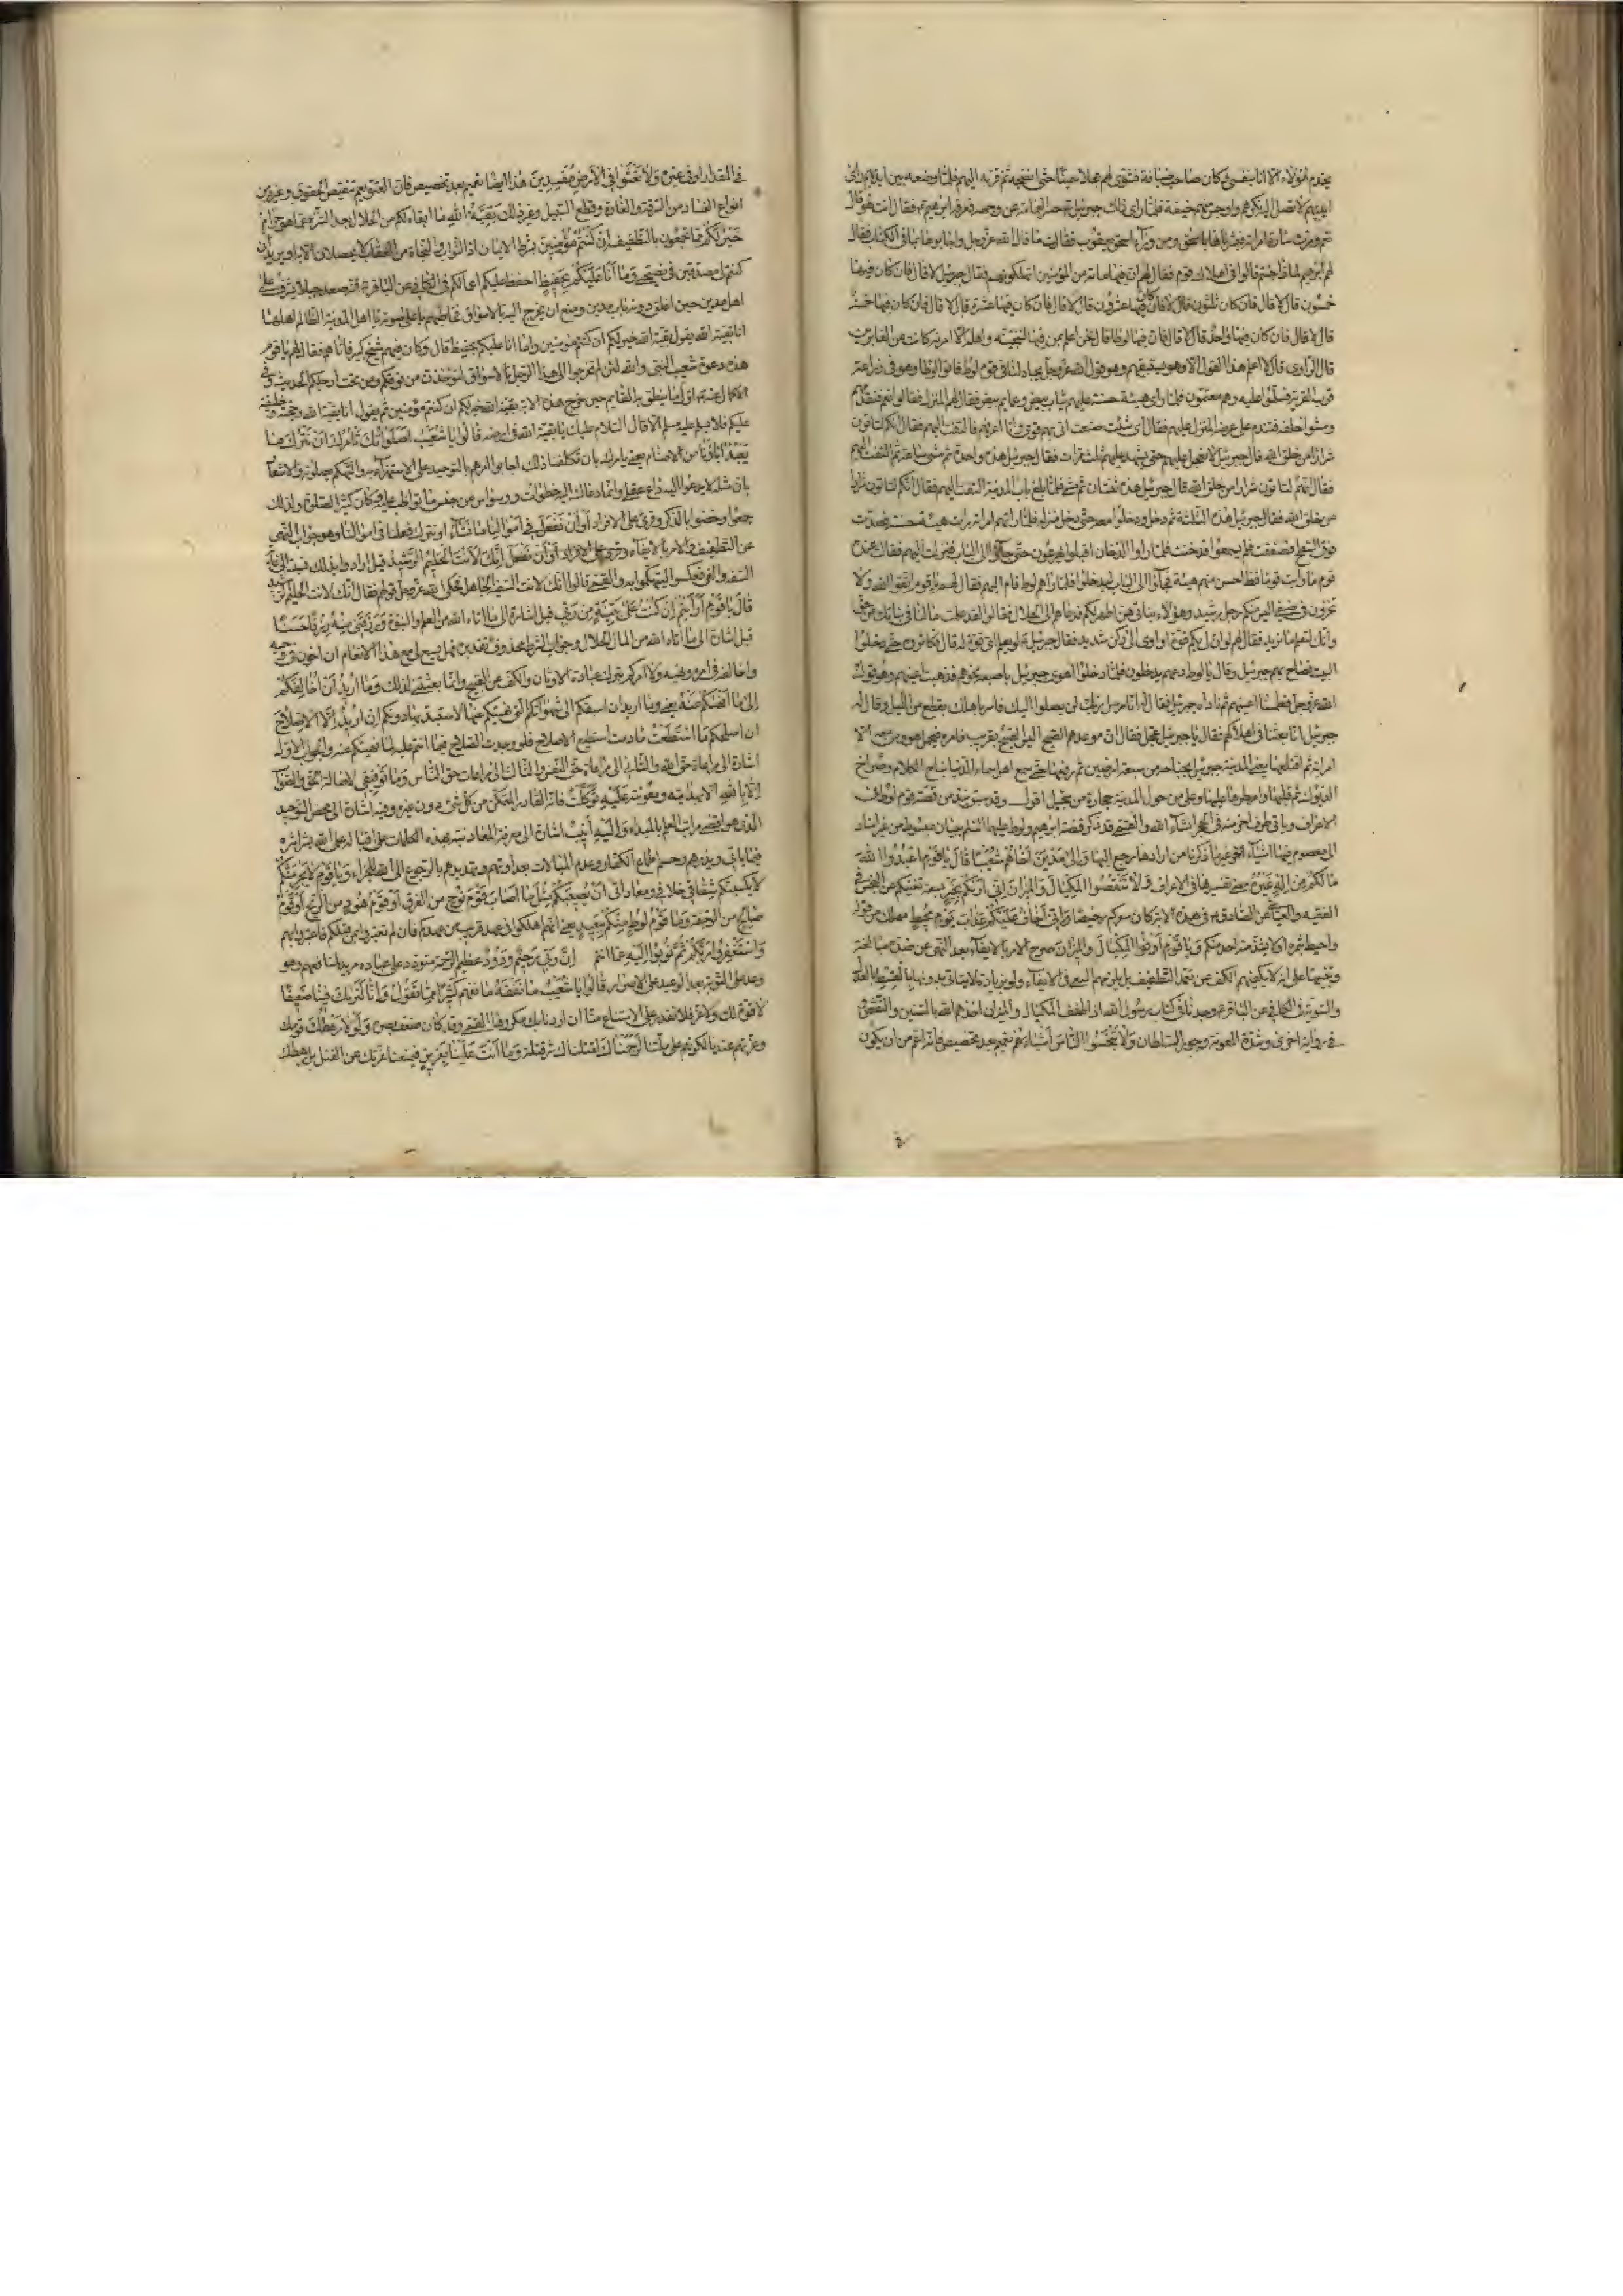 يخدم هؤلاء الا انا بنفسي وكان صاحب ضيافة فشوى لهم عجلا سمينا حتى انضجه ثم قربه اليهم فلما وضعه بين ايديهم رأى
ايديهم لا تصل اليه نكرهم واوجس منهم خيفة فلما رأى ذلك جبرئيل حسر العمامة عن وجهه فعرفه ابراهيم فقال انت هو قال
نعم ومرت سارة امرأته فبشرها باسحق ومن وراء اسحق يعقوب فقالت ما قال الله عز وجل واجابوها بما في الكتاب فقال
لهم ابرهيم لما ذا جئتم قالوا في اهلاك قوم لوط فقال لهم ان كان فيها مائة من المؤمنين اتهلكونهم فقال جبرئيل لا قال فان كان فيها
خمسون قال لا قال فان كان ثلثون قال لا قال فان كان فيها عشرون قال لا قال فان كان فيها عشرة قال لا قال فان كان فيها خمسة
قال لا قال فان كان فيها واحد قال لا قال فان فيها لوطا قالوا نحن اعلم بمن فيها لننجينه واهله الا امرأته كانت من الغابرين
قال الراوي قال لا اعلم هذا القول الا وهو يستبقيهم وهو قول الله عز وجل يجادلنا في قوم لوط فاتوا لوطا وهو في زراعة
قرب القرية فسلموا عليه وهم معتمون فلما رأى هيئة حسنة عليهم ثياب بيض وعمايم بيض فقال لهم المنزل فقالوا نعم فتقدمهم
ومشوا خلفه فتندم على عرضه المنزل عليهم فقال اي شئ صنعت اتي بهم قومي وانا اعرفهم فالتفت اليهم فقال انكم لتأتون
شرارا من خلق الله قال جبرئيل لا تعجل عليهم حتى يشهد عليهم ثلث مرات فقال جبرئيل هذه واحدة ثم مشى ساعة ثم التفت اليهم
فقال انكم لتأتون شرارا من خلق الله قال جبرئيل هذه ثنتان ثم مشى فلما بلغ باب المدينة التفت اليهم فقال انكم لتأتون شرارا
من خلق الله فقال جبرئيل هذه الثلثة ثم دخل ودخلوا معه حتى دخل منزله فلما رأتهم امرأته رأت هيئة حسنة فصعدت
فوق السطح فصفقت فلم يسمعوا فدخنت فلما رأوا الدخان اقبلوا يهرعون حتى جاؤا الى الباب فنزلت اليهم فقالت عنده
قوم ما رأيت قوما قط احسن منهم هيئة فجاؤا الى الباب ليدخلوا فلما رآهم لوط قام اليهم فقال لهم يا قوم اتقوا الله ولا
تخزون في ضيفي اليس منكم رجل رشيد وقال هؤلاء بناتي هن اطهر لكم فدعاهم الى الحلال فقالوا لقد علمت ما لنا في بناتك من حق
وانك لتعلم ما نريد فقال لهم لو ان لي بكم قوة او اوي الى ركن شديد فقال جبرئيل لو يعلم اي قوة له قال فكاثروه حتى دخلوا
البيت فصاح بهم جبرئيل وقال يا لوط دعهم يدخلون فلما دخلوا اهوى جبرئيل باصبعه نحوهم فذهبت اعينهم وهو قول
الله عز وجل فطمسنا اعينهم ثم ناداه جبرئيل فقال له انا رسل ربك لن يصلوا اليك فاسر باهلك بقطع من الليل وقال له
جبرئيل انا بعثنا في اهلاكهم فقال يا جبرئيل عجل فقال ان موعدهم الصبح اليس الصبح بقريب فامره فتحمل هو ومن معه الا
امرأته ثم اقتلعها يعني المدينة جبرئيل بجناحه من سبعة ارضين ثم رفعها حتى سمع اهل سماء الدنيا نباح الكلاب وصراخ
الديوك ثم قلبها وامطر عليها وعلى من حول المدينة حجارة من سجيل اقول وقد سبق نبذ من قصة قوم لوط في
الاعراف ويأتي طرف اخر منه في الحجر انشاء الله والقمي قد ذكر قصة ابرهيم ولوط عليهما السلم ببيان مبسوط من غير اسناد
الى معصوم فيها اشياء اخر غير ما ذكرنا من ارادها رجع اليها والى مدين اخاهم شعيبا قال يا قوم اعبدوا الله
ما لكم من اله غيره مضى تفسيرها في الاعراف ولا تنقصوا المكيال والميزان اني اريكم بخير بسعة تغنيكم عن البخس في
الفقيه والعياشي عن الصادق في هذه الاية كان سعرهم رخيصا واني اخاف عليكم عذاب يوم محيط مهلك من قوله
واحيط بثمره او لا يشذ منه احد منكم ويا قوم اوفوا المكيال والميزان صرح بالامر بالايفاء بعد النهي عن ضده مبالغة
وتنبيها على انه لا يكفيهم الكف عن تعمد التطفيف بل يلزمهم السعي في الايفاء ولو بزيادة لا يتأتى بدونها بالقسط بالعدل
والسوية في الكافي عن الباقر وجدنا في كتاب رسول الله اذا طفف المكيال والميزان اخذهم الله بالسنين والنقص و
في رواية اخرى وشدة المؤنة وجور السلطان ولا تبخسوا الناس اشياءهم تعميم بعد تخصيص فانه اعم من ان يكون
في المقدار او في غيره ولا تعثوا في الارض مفسدين هذا ايضا تعميم بعد تخصيص فان العثو يعم تنقيص الحقوق وغيره من
انواع الفساد من السرقة والغارة وقطع السبيل وغير ذلك بقية الله ما ابقاه لكم من الحلال بعد التنزه عما هو حرام
خير لكم مما تجمعون بالتطفيف ان كنتم مؤمنين بشرط الايمان اذ الثواب والنجاة من العقاب لا يحصلان الا به او يريد ان
كنتم مصدقين في نصيحتي وما انا عليكم بحفيظ احفظ عليكم اعمالكم في الكافي عن الباقر انه صعد جبلا يشرف على
اهل مدين حين اغلق دونه باب مدين ومنع ان يخرج اليه بالاسواق فخاطبهم باعلى صوته يا اهل المدينة الظالم اهلها
انا بقية الله يقول بقية الله خير لكم ان كنتم مؤمنين وما انا عليكم بحفيظ قال وكان فيهم شيخ كبير فاتاهم فقال لهم يا قوم
هذه دعوة شعيب النبي والله لئن لم تخرجوا الى هذا الرجل بالاسواق لتؤخذن من فوقكم ومن تحت ارجلكم الحديث وفي
الاكمال عنه اول ما ينطق به القايم حين خرج هذه الاية بقية الله خير لكم ان كنتم مؤمنين ثم يقول انا بقية الله وحجته وخليفته
عليكم فلا يسلم عليه مسلم الا قال السلام عليك يا بقية الله في ارضه قالوا يا شعيب اصلواتك تأمرك ان نترك ما
يعبد اباؤنا من الاصنام يعني يأمرك بان تكلفنا ذلك اجابوا امرهم بالتوحيد على الاستهزاء به والتهكم بصلوته والاشعار
بان مثله لا يدعوا اليه داع عقلي وانما دعاك اليه خطرات ووسواس من جنس ما تواظب عليه وكان كثير الصلوة ولذلك
جمعوا وخصوا بالذكر وقرئ على الافراد او ان نفعل في اموالنا ما نشاء او نترك فعلنا في اموالنا وهو جواب النهي
عن التطفيف والامر بالايفاء انك لانت الحليم الرشيد قيل ارادوا بذلك نسبته الى غاية
السفه والغي فعكسوا ليتهكموا به والقمي قالوا انك لانت السفيه الجاهل فحكى الله عز وجل قولهم فقال انك لانت الحليم الرشيد
قال يا قوم ارأيتم ان كنت على بينة من ربي قيل اشارة الى ما اتاه الله من العلم والنبوة ورزقني منه رزقا حسنا
قيل اشارة الى ما اتاه الله من المال الحلال وجواب الشرط محذوف تقديره فهل يسع لي مع هذا الانعام ان اخون في وحيه
واخالفه في امره ونهيه ولا امركم بترك عبادة الاوثان والكف عن القبيح وانما بعثني لذلك وما اريد ان اخالفكم
الى ما انهيكم عنه يعني وما اريد ان اسبقكم الى شهواتكم التي نهيتكم عنها لاستبد بها دونكم ان اريد الا الاصلاح
ان اصلحكم ما استطعت ما دمت استطيع الاصلاح فلو وجدت الصلاح فيما انتم عليه لما نهيتكم عنه والجواب الاول
اشارة الى مراعاة حق الله والثاني الى مراعاة حق النفس والثالث الى مراعات حق الناس وما توفيقي لاصابة الحق والصواب
الا بالله الا بهدايته ومعونته عليه توكلت فانه القادر المتمكن من كل شئ دون غيره وفيه اشارة الى محض التوحيد
الذي هو اقصى مراتب العلم بالمبداء واليه انيب اشارة الى معرفة المعاد نبه بهذه الكلمات على اقباله على الله بشراشره
فيما يأتي ويذر وحسم اطماع الكفار وعدم المبالات بعداوتهم وتهديدهم بالرجوع الى الله للجزاء ويا قوم لا يجرمنكم
لا يكسبنكم شقاقي خلافي ومعاداتي ان يصيبكم مثل ما اصاب قوم نوح من الغرق او قوم هود من الريح او قوم
صالح من الرجفة وما قوم لوط منكم ببعيد يعني انهم اهلكوا في عهد قريب من عهدكم فان لم تعتبروا بمن قبلكم فاعتبروا بهم
واستغفروا ربكم ثم توبوا اليه عما انتم ان ربي رحيم ودود عظيم الرحمة متودد على عباده مريد لمنافعهم وهو
وعد على التوبة بعد الوعيد على الاصرار قالوا يا شعيب ما نفقه ما نفهم كثيرا مما تقول وانا لنريك فينا ضعيفا
لا قوة لك ولا عز فلا تقدر على الامتناع منا ان اردنا بك مكروها القمي وقد كان ضعف بصره ولولا رهطك قومك
وعزتهم عندنا لكونهم على ملتنا لرجمناك لقتلناك شر قتلة وما انت علينا بعزيز فيمنعنا عزتك عن القتل بل رهطك